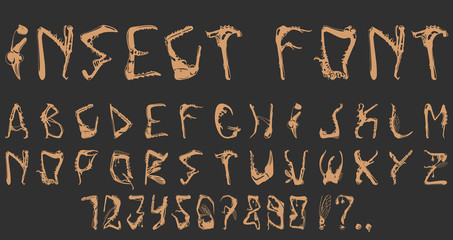 iNSECT FONT
A B C D E F G H i J K L M
N O P Q R S T U V W X Y Z
1 2 3 4 5 6 7 8 9 0 ! ? . ,